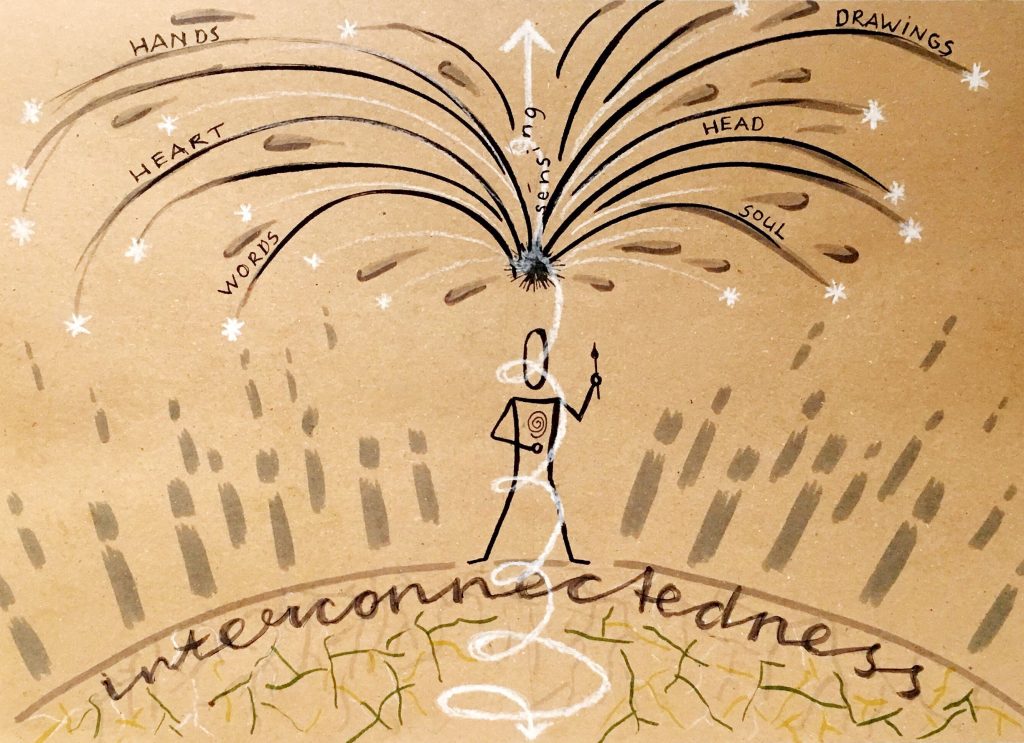 HANDS
DRAWINGS
sensing
HEART
HEAD
WORDS
SOUL
interconnectedness